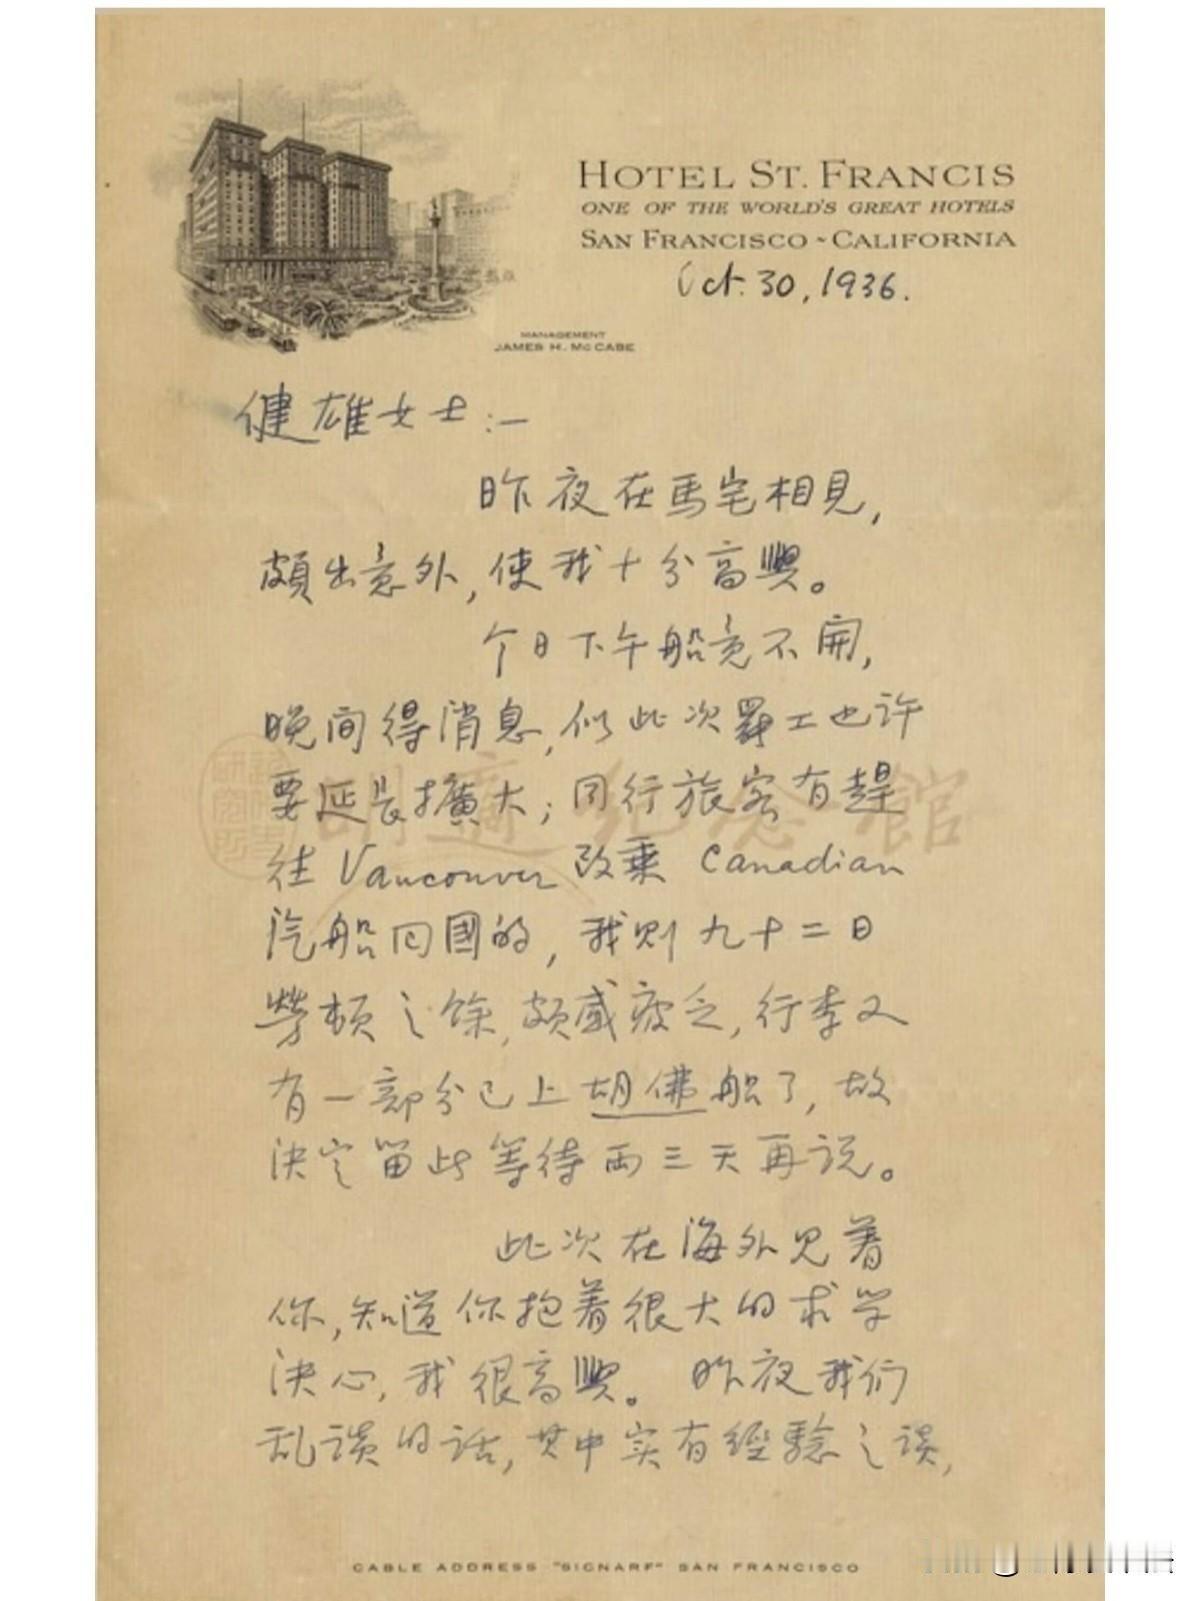 HOTEL ST. FRANCIS
ONE OF THE WORLD'S GREAT HOTELS
SAN FRANCISCO ~ CALIFORNIA
Oct. 30, 1936.
MANAGEMENT
JAMES H. McCABE
健雄女士：—
昨夜在馬宅相見，
頗出意外，使我十分高興。
今日下午船竟不開，
晚间得消息，似此次罷工也许
要延長擴大；同行旅客有趕
往 Vancouver 改乘 Canadian
汽船回國的，我则九十二日
勞頓之餘，頗感疲乏，行李又
有一部分已上胡佛船了，故
决定留此等待兩三天再说。
此次在海外见着
你，知道你抱着很大的求学
决心，我很高興。昨夜我们
乱谈的话，其中实有經驗之谈，
胡適纪念館
CABLE ADDRESS "SIGNARF" SAN FRANCISCO